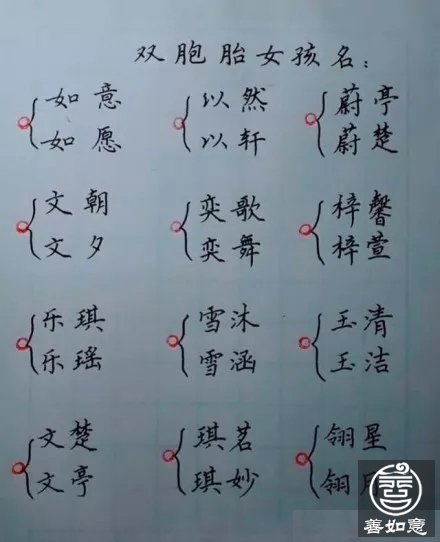 双胞胎女孩名：
如意 以然 蔚亭
如愿 以轩 蔚楚
文朝 奕歌 梓馨
文夕 奕舞 梓萱
乐琪 雪沐 玉清
乐瑶 雪涵 玉洁
文楚 琪茗 翎星
文亭 琪妙 翎
善如意